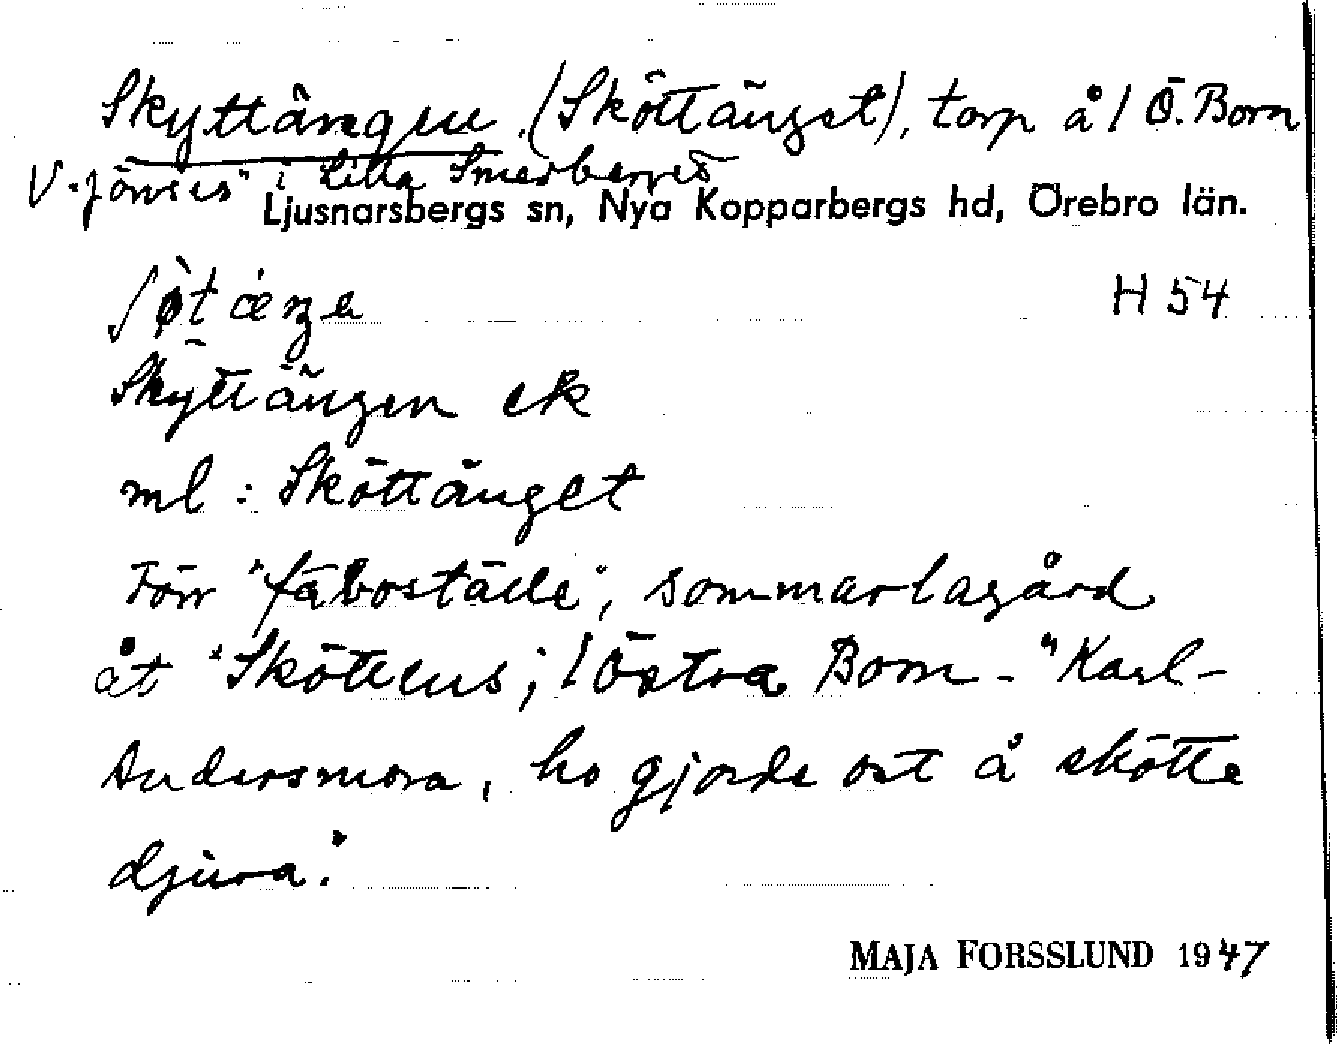 Skyttängen (Sköttänget), torp å 1 Ö. Born
V. "Jönses" i Lilla Smedberget
Ljusnarsbergs sn, Nya Kopparbergs hd, Örebro län.
H 54
Skyttängen ek
ml : Sköttänget
Förr "fäboställe", sommarlagård
åt "Sköttens", 1 Östra Born - "Karl-
Andersmora, ho gjorde ost å skötte
djura."
MAJA FORSSLUND 1947